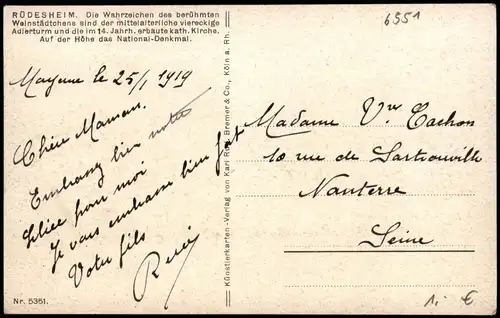 RÜDESHEIM. Die Wahrzeichen des berühmten
Weinstädtchens sind der mittelalterliche viereckige
Adlerturm und die im 14. Jahrh. erbaute kath. Kirche.
Auf der Höhe das National-Denkmal.
6551
Mayence le 25/1 1919
Chère Maman.
Embrassez bien notre
pour moi
Je vous embrasse bien fort
Votre fils
René
Künstlerkarten-Verlag von Karl Rud. Bremer & Co., Köln a. Rh.
Madame Vve Cachon
10 rue de Sartrouville
Nanterre
Seine
Nr. 5351.
1,- €